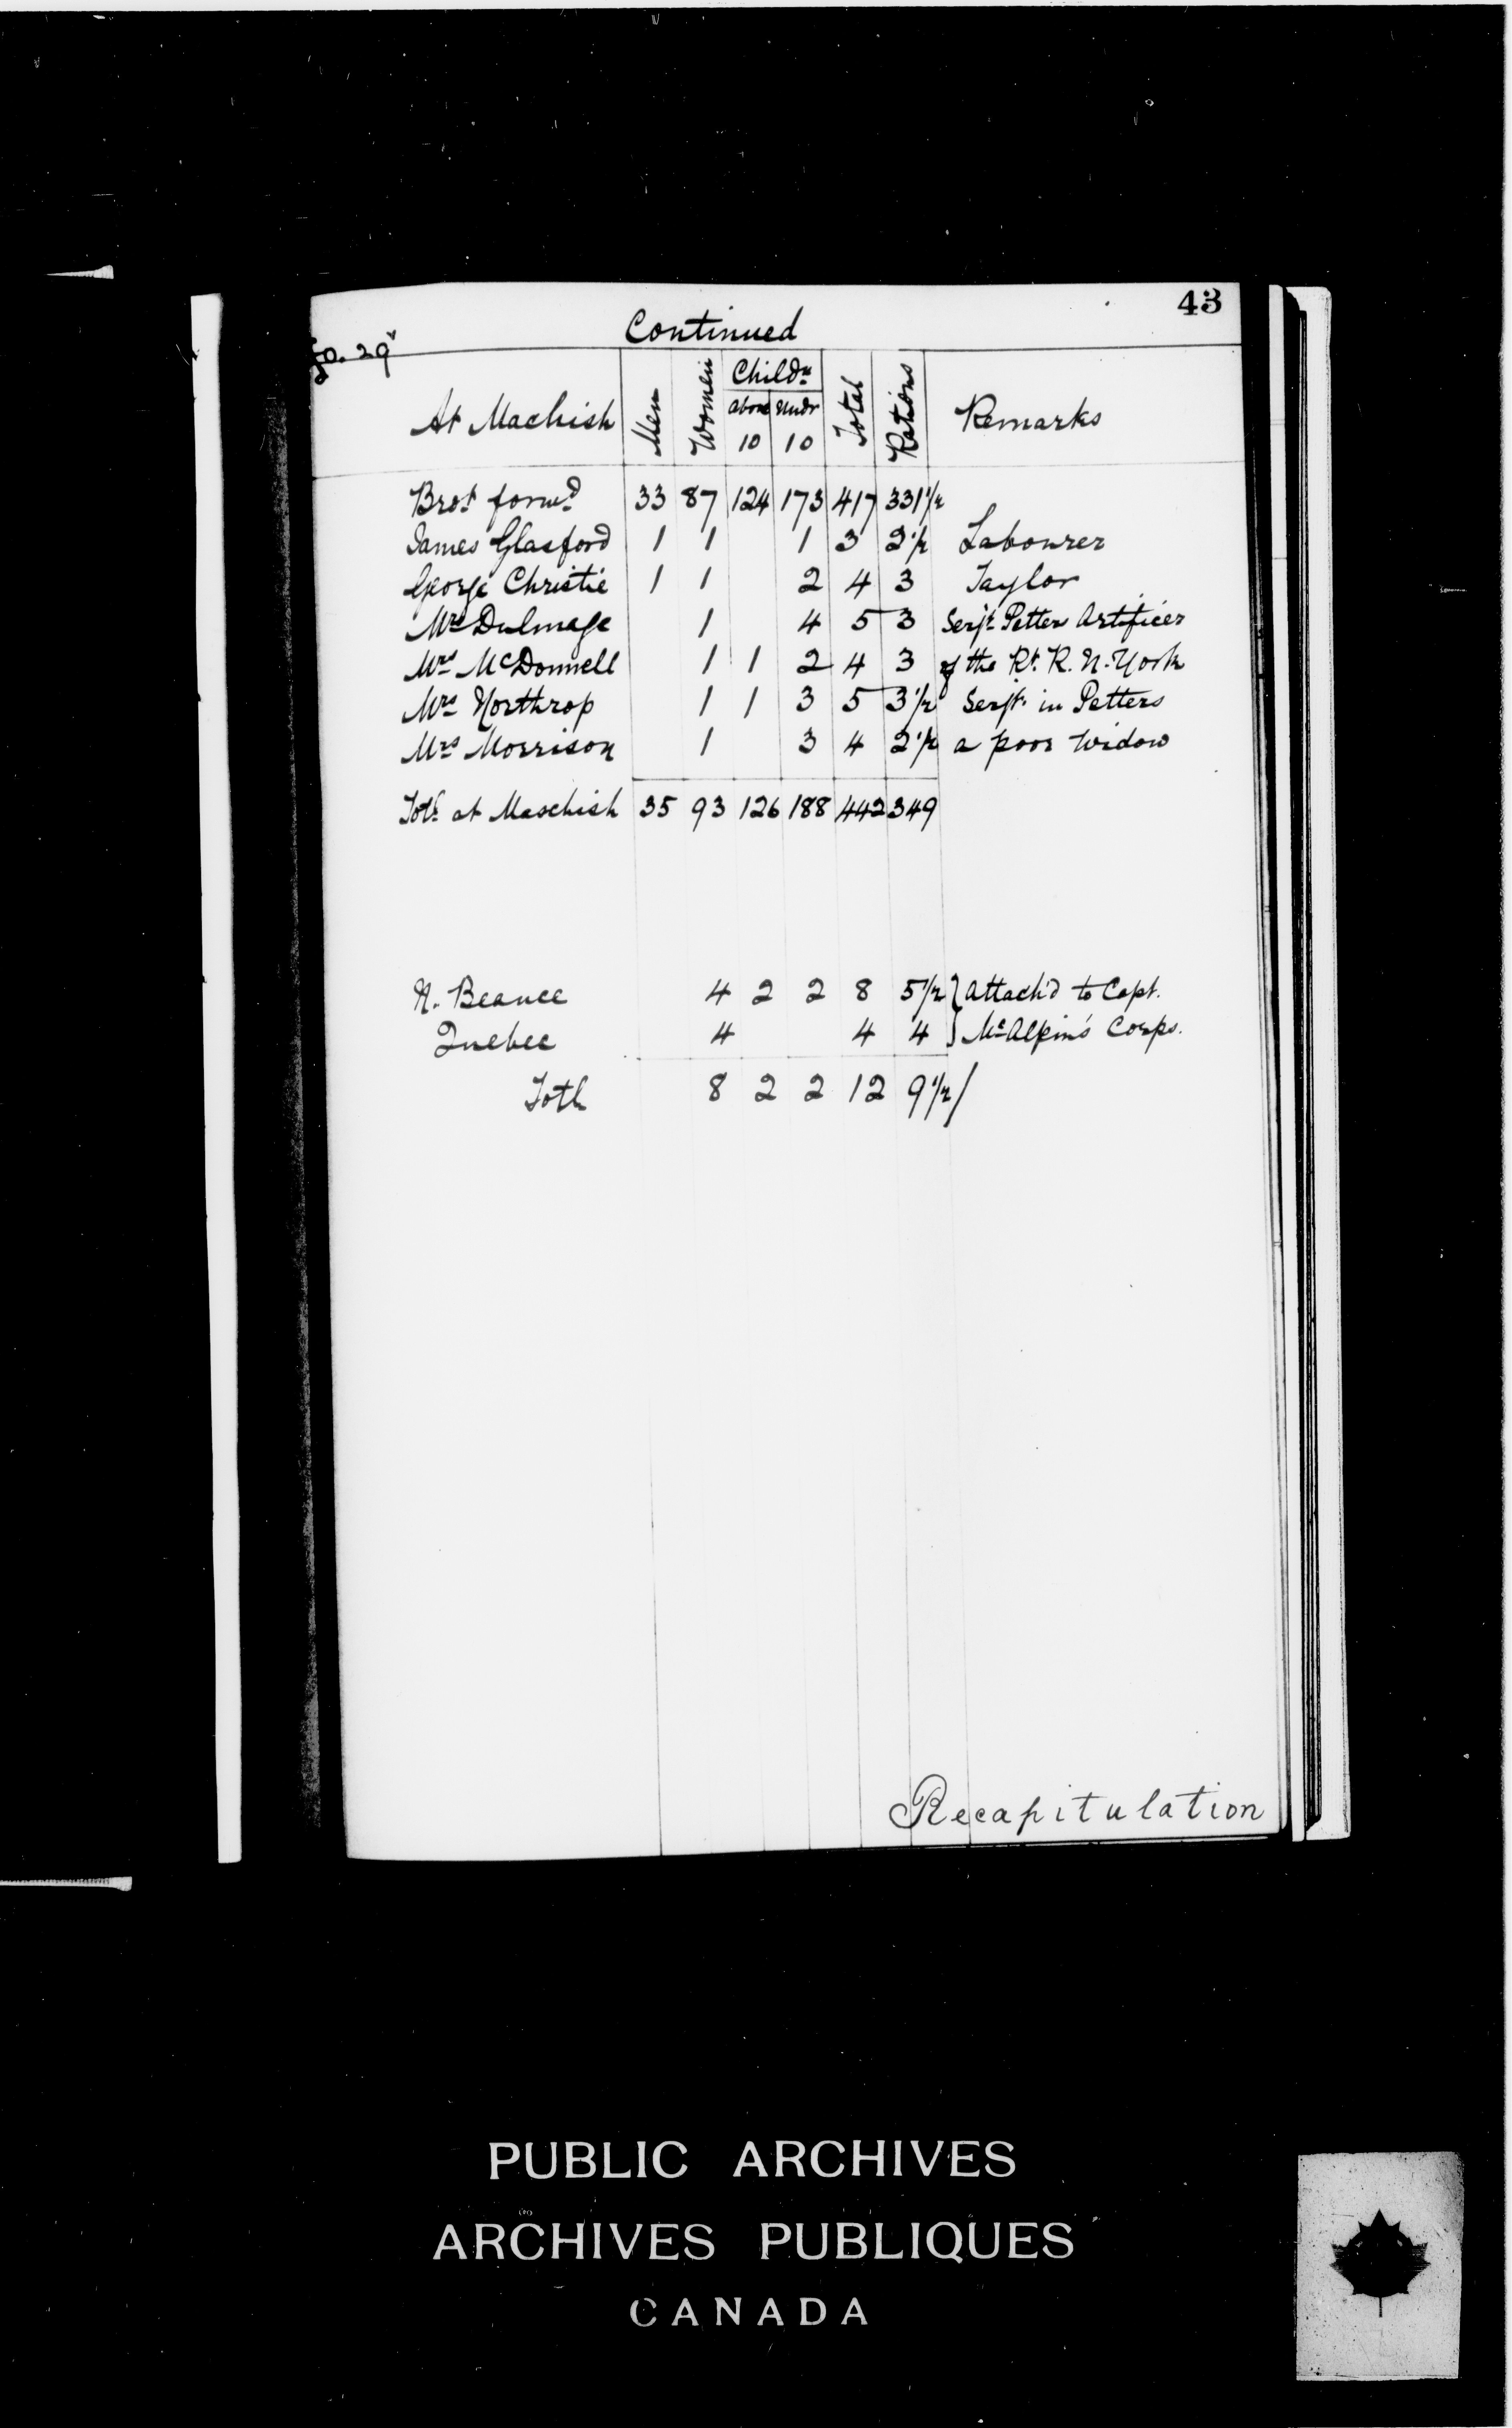 43
Continued
fo. 29v
At Machish Men Women Childn above 10 Undr 10 Total Rations Remarks
Brot forwd 33 87 124 173 417 331 1/2
James Glasford 1 1 1 3 2 1/2 Labourer
George Christie 1 1 2 4 3 Taylor
Mrs Dulmage 1 4 5 3 Serjt Petters Artificer
Mrs McDonnell 1 1 2 4 3 of the Rt. R. N. York
Mrs Northrop 1 1 3 5 3 1/2 Serjt. in Petters
Mrs Morrison 1 3 4 2 1/2 a poor Widow
Totl at Maschish 35 93 126 188 442 349
N. Beauce 4 2 2 8 5 1/2 } Attach'd to Capt.
Quebec 4 4 4 } McAlpin's Corps.
Totl 8 2 2 12 9 1/2 /
Recapitulation
PUBLIC ARCHIVES
ARCHIVES PUBLIQUES
CANADA